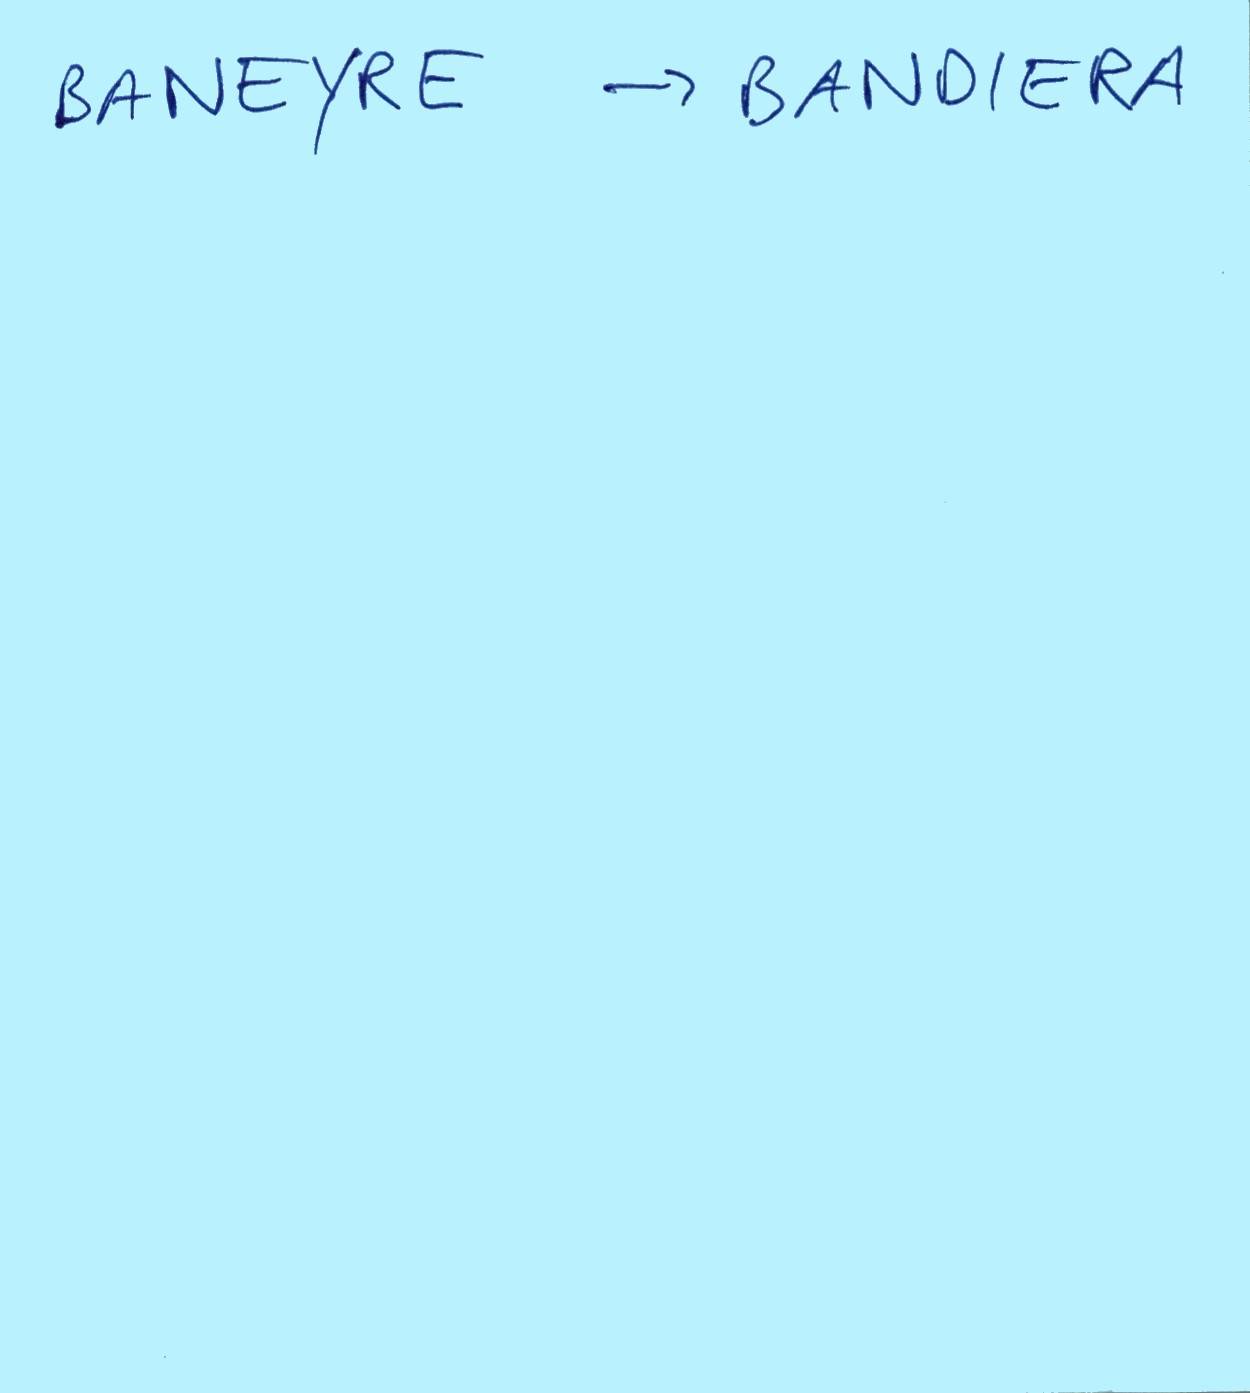 BANEYRE → BANDIERA